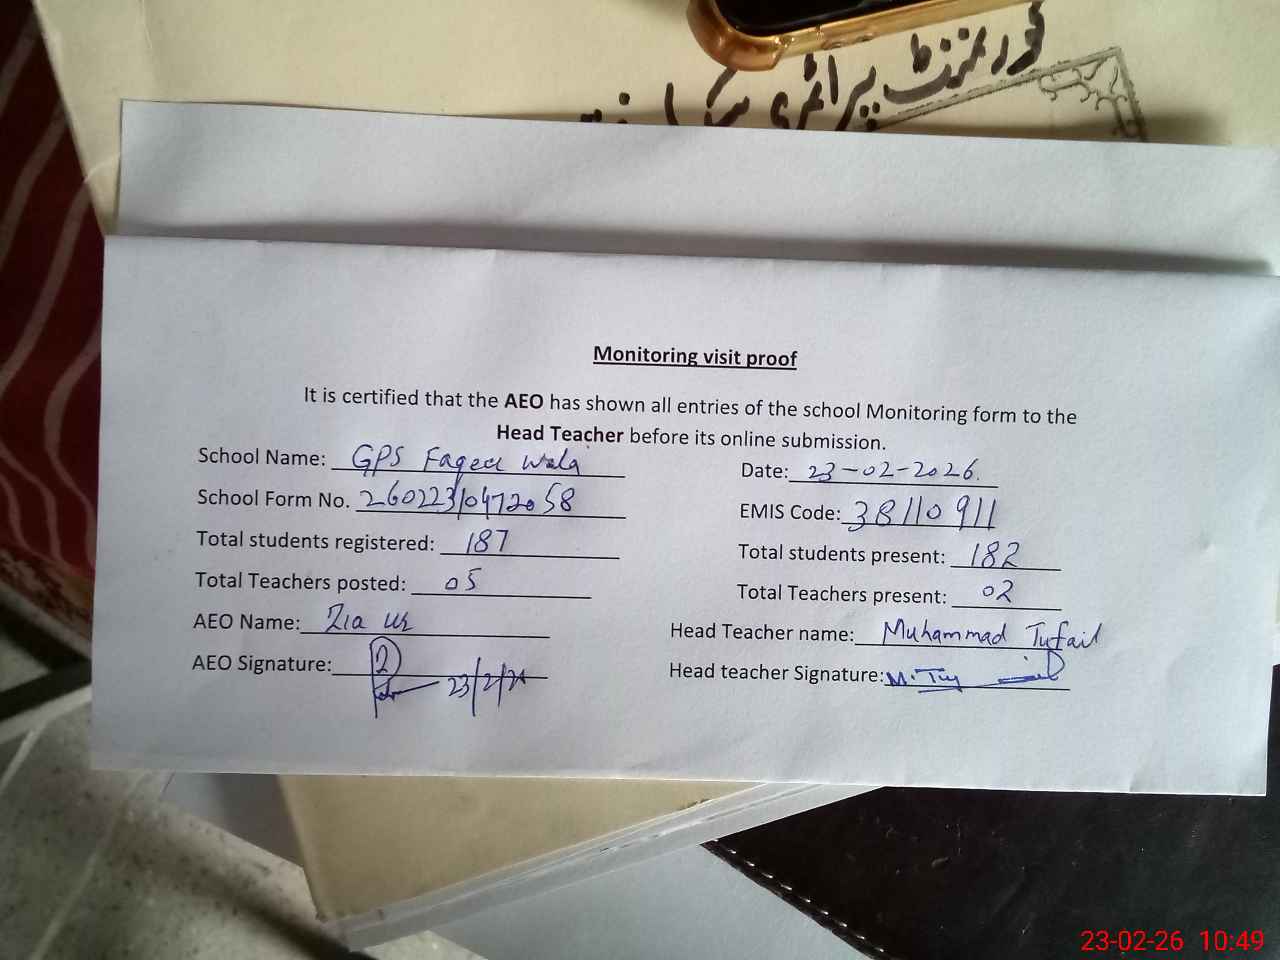 گورنمنٹ پرائمری
Monitoring visit proof
It is certified that the AEO has shown all entries of the school Monitoring form to the
Head Teacher before its online submission.
School Name: GPS Faqeer Wala Date: 23-02-2026.
School Form No. 260223/0472058 EMIS Code: 38110911
Total students registered: 187 Total students present: 182
Total Teachers posted: 05 Total Teachers present: 02
AEO Name: Zia ur Head Teacher name: Muhammad Tufail
AEO Signature: 23/2/26 Head teacher Signature: M. Tufail
23-02-26 10:49